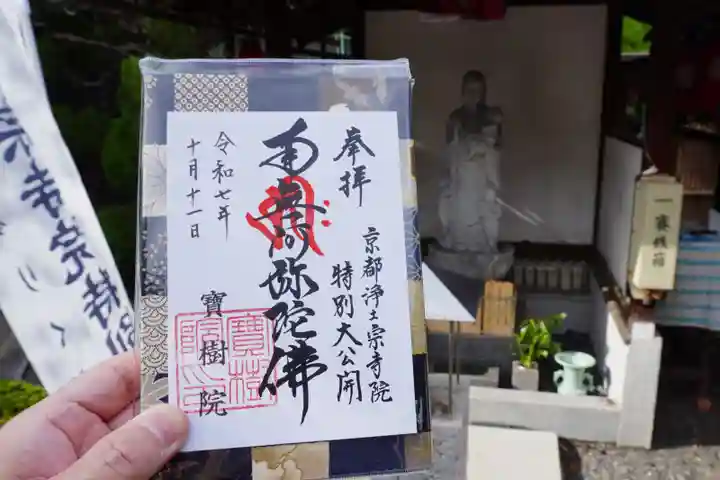 奉拝
京都浄土宗寺院
特別大公開
南無阿弥陀佛
寶樹院
令和七年
十月十一日
寶樹院印
賽銭箱